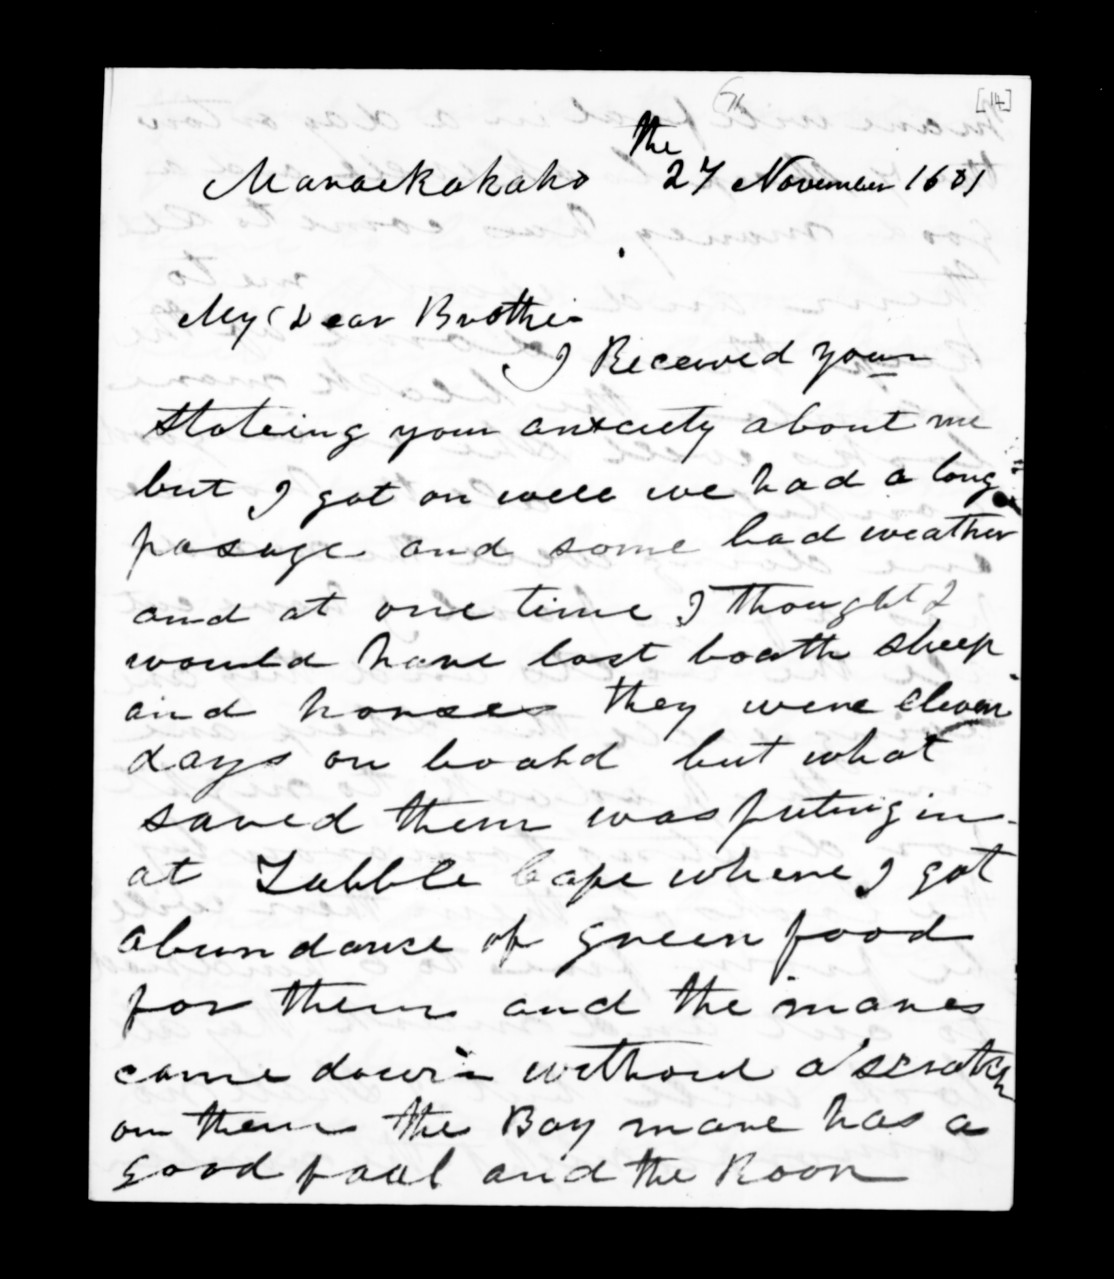 [14]
the
Maraekakaho 27 November 1861
My Dear Brother
I Received your
Stateing your anxciety about me
but I got on well we had a long
pasage and some bad weather
and at one time I thought I
would have lost boath sheep
and horses they were eleven
days on boahd but what
saved them was puting in
at Tabble Cape where I got
abundance of green food
for them and the mares
came down without a scratch
on them the Bay mare has a
good foal and the Roon